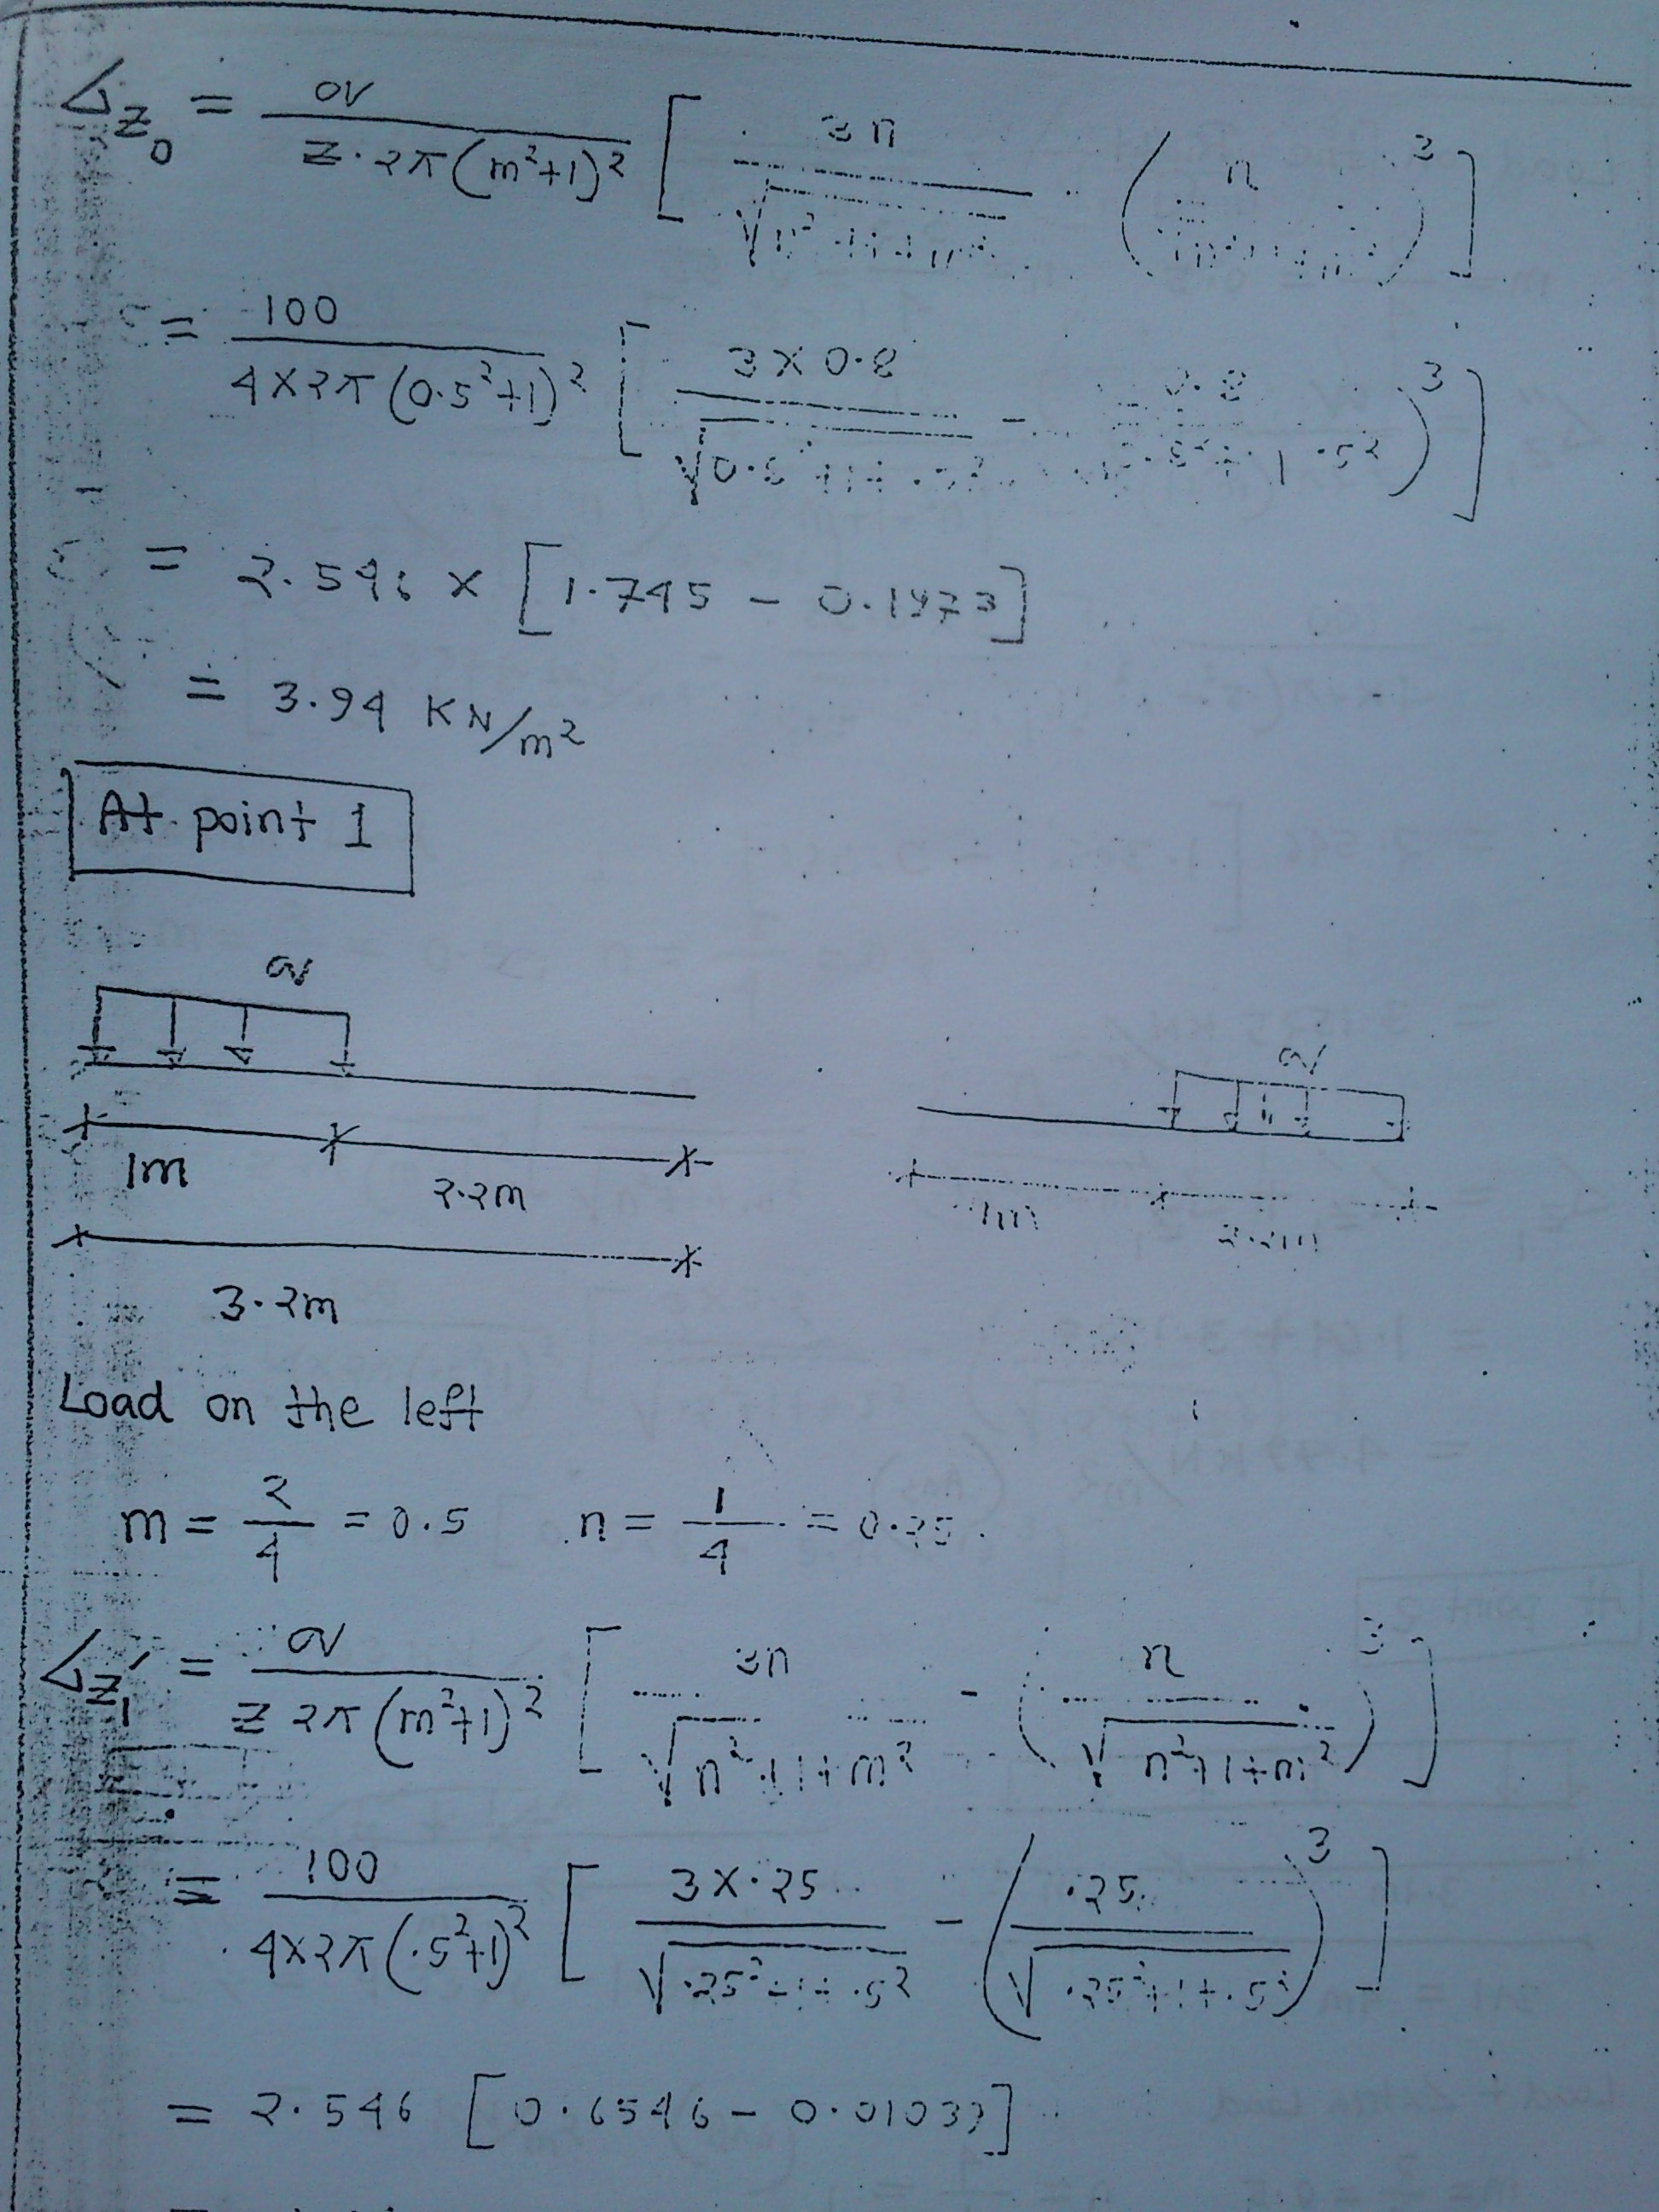 σz₀ = q / z·2π(m²+1)² [ 3n / √n²+1+m² - ( n / √n²+1+m² )³ ]
= 100 / 4×2π(0.5²+1)² [ 3×0.8 / √0.8²+1+.5² - ( 0.8 / √0.8²+1+.5² )³ ]
= 2.546 × [1.745 - 0.1973]
= 3.94 KN/m²
At point 1
q
q
1m 2.2m
1m 2.2m
3.2m
Load on the left
m = 2/4 = 0.5 n = 1/4 = 0.25
σz₁' = q / z 2π(m²+1)² [ 3n / √n²+1+m² - ( n / √n²+1+m² )³ ]
= 100 / 4×2π(.5²+1)² [ 3×.25 / √.25²+1+.5² - ( .25 / √.25²+1+.5² )³ ]
= 2.546 [0.6546 - 0.01039]